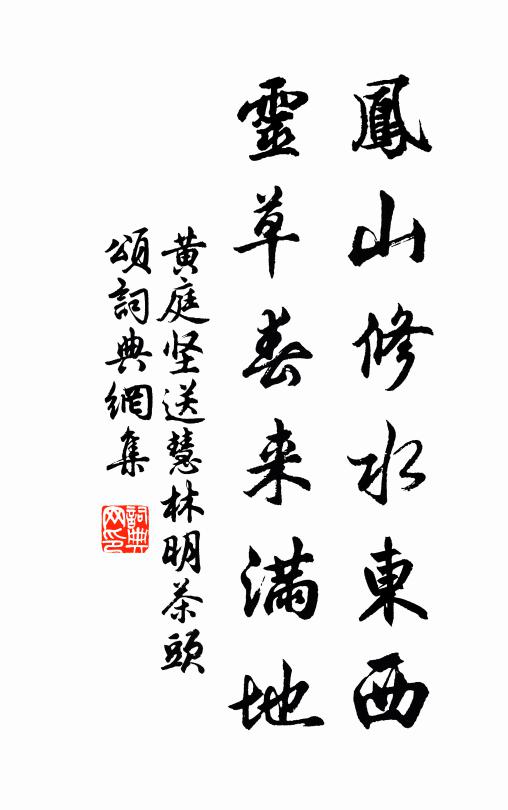 鳳山修水東西
靈草春来滿地
黄庭坚送慧林明茶頭
頌詞典網集
詞典网印